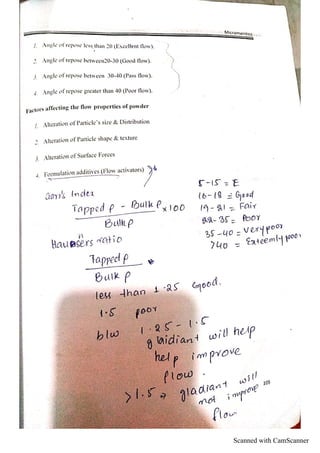 Micromeritics
1. Angle of repose less than 20 (Excellent flow).
2. Angle of repose between20-30 (Good flow).
3. Angle of repose between 30-40 (Pass flow).
4. Angle of repose greater than 40 (Poor flow).
Factors affecting the flow properties of powder
1. Alteration of Particle's size & Distribution
2. Alteration of Particle shape & texture
3. Alteration of Surface Forces
4. Formulation additives (Flow activators)
Carr's Index
Tapped ρ - Bulk ρ x100
Bulk ρ
5-15 = E
16-18 = Good
19-21 = Fair
22-35 = Poor
35-40 = very poor
>40 = Exteemly poor
Hausers ratio
Tapped ρ
Bulk ρ
less than 1.25 Good.
1.5 poor
b/w 1.25 - 1.5
glaidiant will help
help improve
flow.
>1.5 → gladiant will
not improve
flow
Scanned with CamScanner